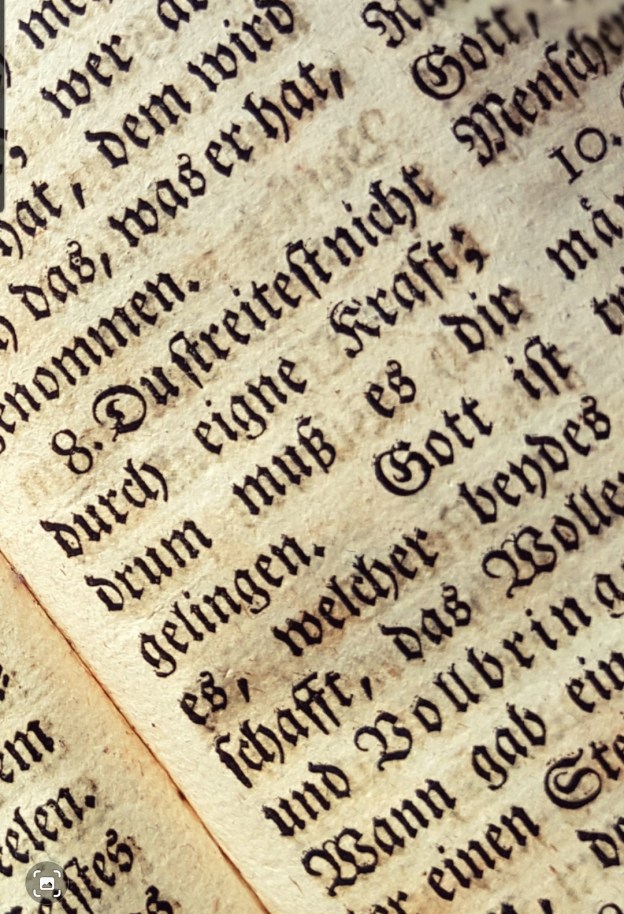 wer
dem wird
hat, was er hat,
das,
genommen.
8. Du streitest nicht
durch eigne Kraft;
drum muß es dir
gelingen. Gott ist
es, welcher beydes
schafft, das Wollen
und Vollbring
Wann gab ein
einen
Gott,
Menschen
10.